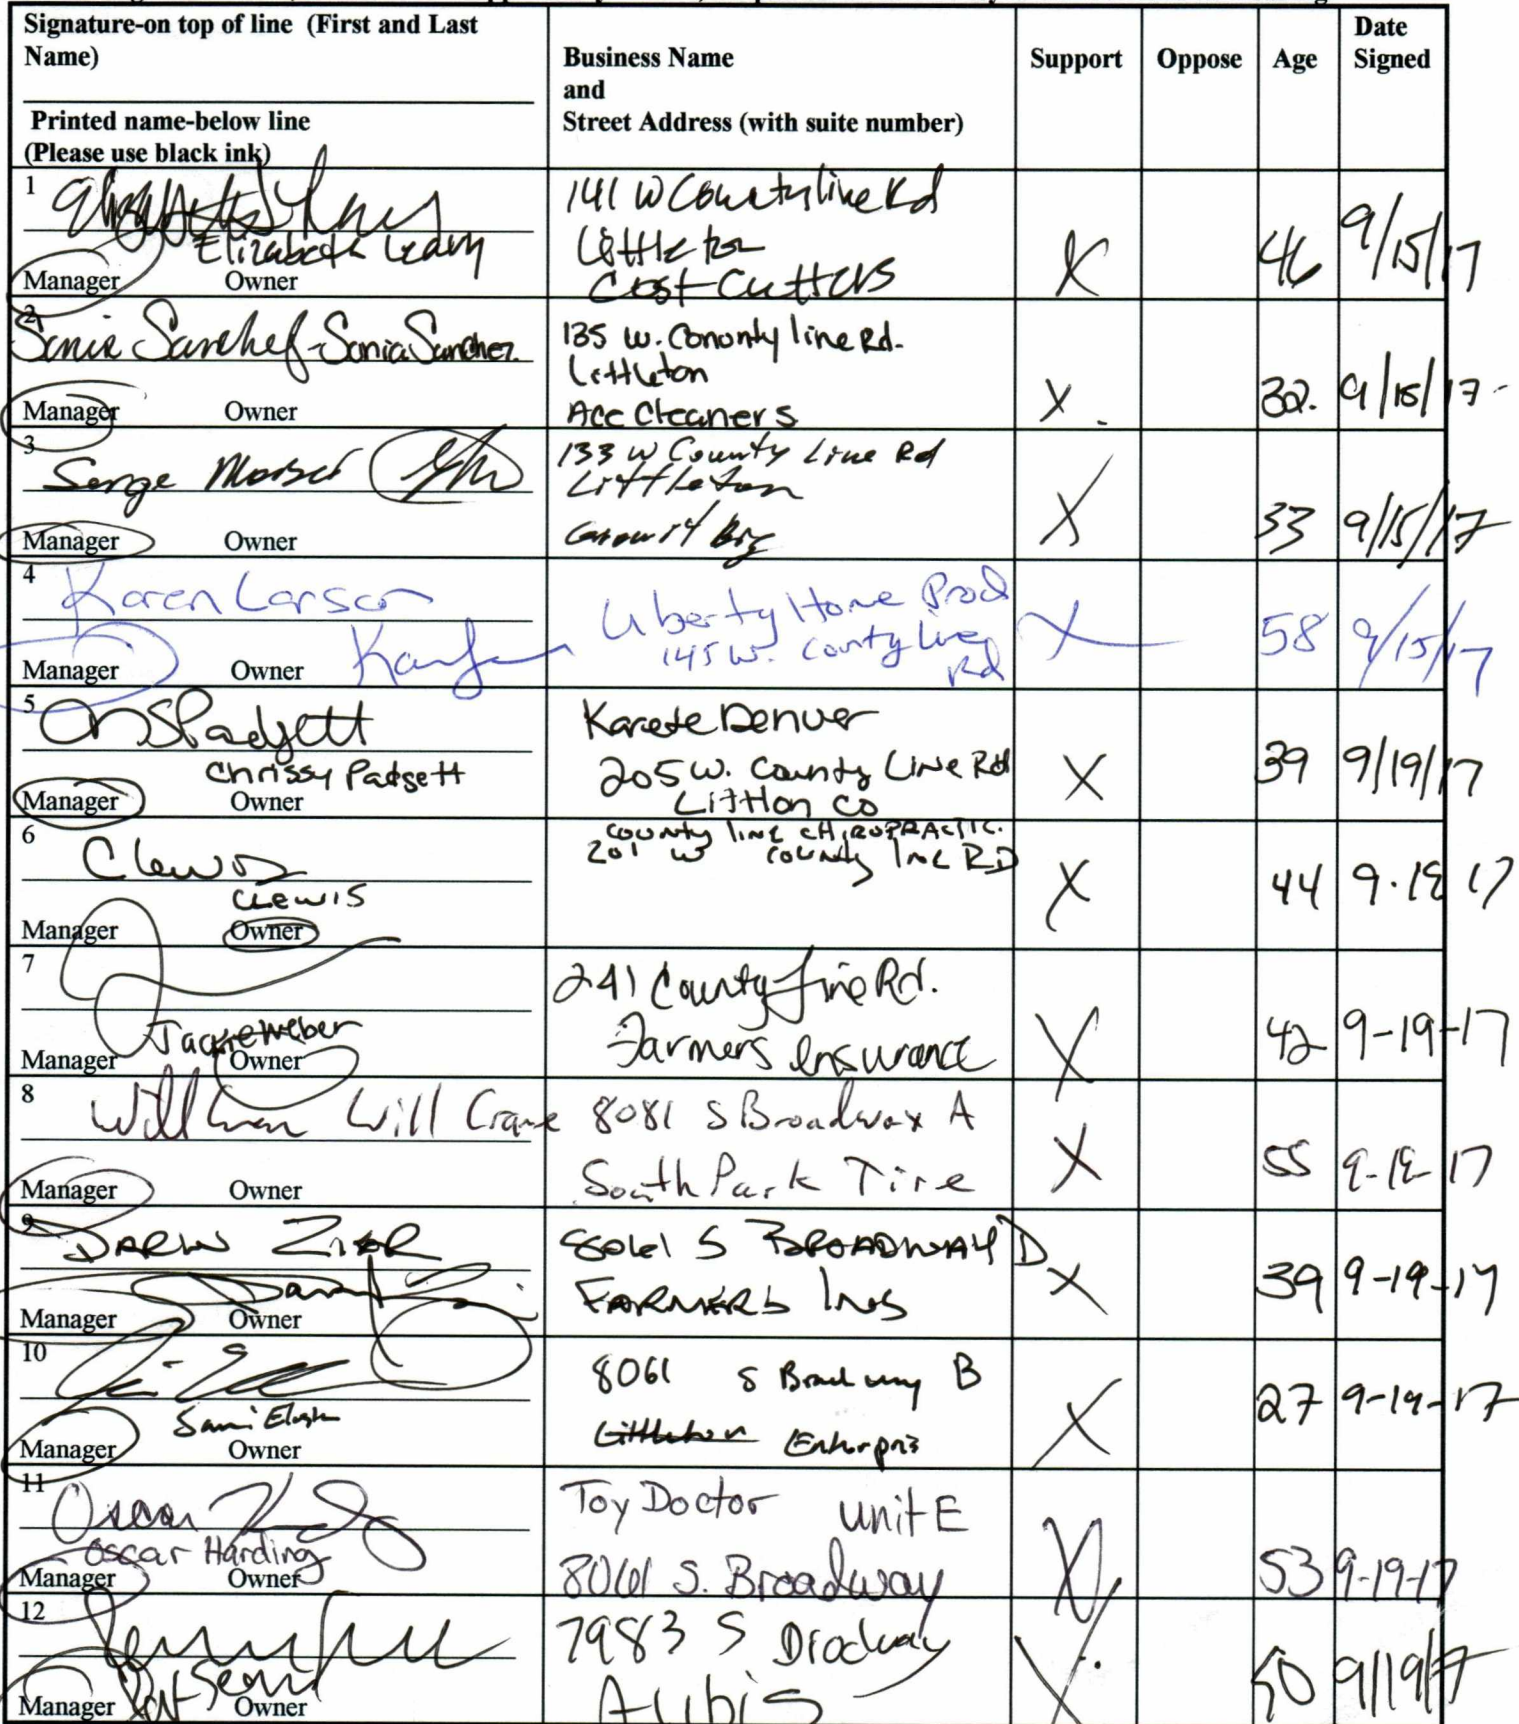 Signature-on top of line (First and Last
Name)
Printed name-below line
(Please use black ink)
Business Name
and
Street Address (with suite number)
Support
Oppose
Age
Date
Signed
1
Elizabeth Leary
Manager Owner
141 W County line Rd
Littleton
Cost Cutters
X
46
9/15/17
2
Sonia Sanchez - Sonia Sanchez
Manager Owner
135 w. Cononty line Rd.
Littleton
Acc Cleaners
X
32.
9/15/17
3
Serge
Manager Owner
133 W County Line Rd
Littleton
X
33
9/15/17
4
Karen Larson
Manager Owner
Liberty Home Prod
145 W. County Line
Rd
X
58
9/15/17
5
Padgett
Chrissy Padgett
Manager Owner
Karate Denver
205 W. County Line Rd
Littlton CO
X
39
9/19/17
6
Clewis
Clewis
Manager Owner
County line CHIROPRACTIC.
201 W County line RD
X
44
9.19 17
7
Jackie Weber
Manager Owner
241 County Line Rd.
Farmers Insurance
X
42
9-19-17
8
Will Crane
Manager Owner
8081 S Broadway A
South Park Tire
X
55
9-19-17
9
DARIN
Manager Owner
8061 S BROADWAY D
FARMERS INS
X
39
9-19-17
10
Sami
Manager Owner
8061 S Broadway B
Littleton Enterpris
X
27
9-19-17
11
Oscar
Oscar Harding
Manager Owner
Toy Doctor Unit E
8061 S. Broadway
X
53
9-19-17
12
Manager Owner
7983 S
X
50
9/19/17